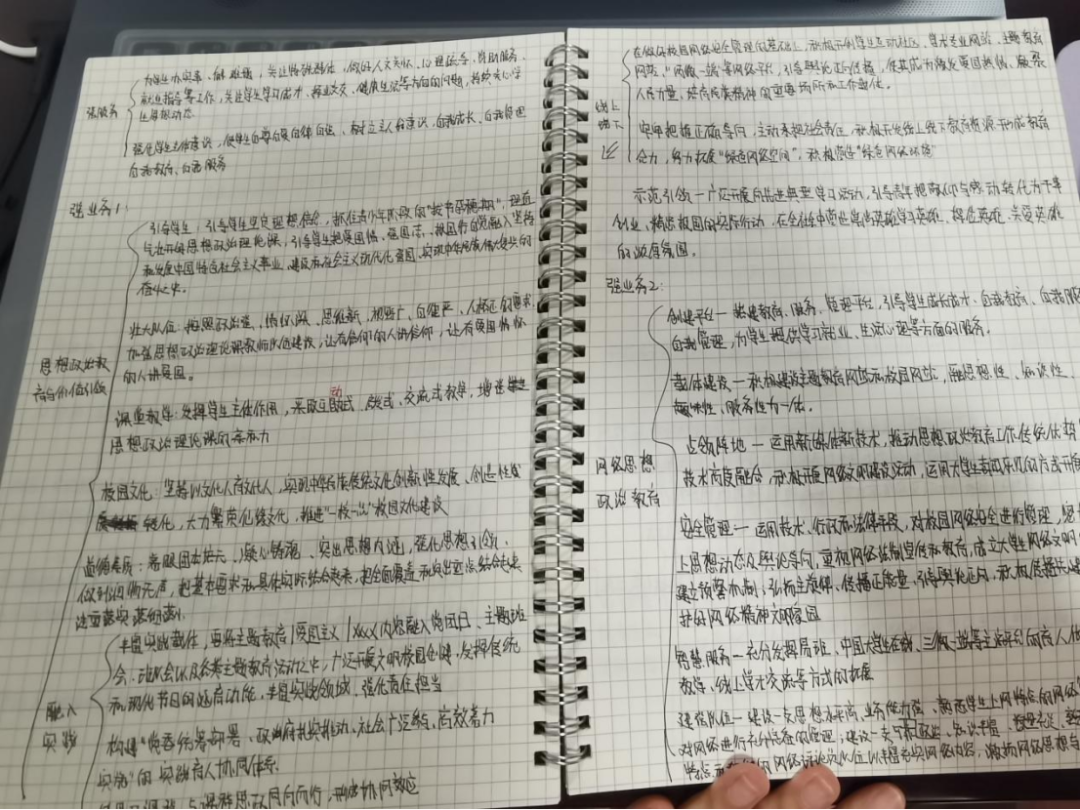 为学生办实事、解难题，关注特殊群体，做好人文关怀、心理疏导、资助服务、
就业指导等工作，关注学生学习成才、择业交友、健康生活等方面的问题，持续关心学
生思想动态
强服务
强化学生主体意识，使学生自尊自爱自律自强，树立主人翁意识，自我成长、自我管理
自我教育、自我服务
强业务1：
引导学生，引导学生坚定理想信念，抓住青少年阶段的"拔节孕穗期"，理直
气壮开好思想政治理论课，引导学生把爱国情、强国志、报国行自觉融入坚持
和发展中国特色社会主义事业、建设社会主义现代化强国、实现中华民族伟大复兴的
奋斗之中。
壮大队伍：按照政治强、情怀深、思维新、视野广、自律严、人格正的要求
加强思想政治理论课教师队伍建设，让有信仰的人讲信仰，让有爱国情怀
的人讲爱国。
思想政治教
育与价值引领
动
课堂教学：发挥学生主体作用，采取互动式、启发式、交流式教学，增进
思想政治理论课的亲和力
校园文化：坚持以文化人育文化人，实现中华民族传统文化创新性发展、创造性
转化，大力繁荣传统文化，推进"一校一品"校园文化建设
道德素质：着眼固本培元、凝心铸魂、突出思想内涵，强化思想引领，
做到润物无声，把基本要求和具体实际结合起来，把全面覆盖和突出重点结合起来
注重落实落细落小
丰富实践载体，要将主题教育/爱国主义/xxxx内容融入党团日、主题班
会、班会以及各类主题教育活动之中，广泛开展文明校园创建，发挥传统
和现代节日的涵育功能，丰富实践领域，强化责任担当
融入
实践
构建"党委统筹部署、政府扎实推动、社会广泛参与、高效着力
实施"的实践育人协同体系
与课程思政同向同行，形成协同效应
在做好校园网络安全管理的基础上，积极开创学生互动社区、学术专业网站、主题教育
网站、"两微一端"等网络平台，引导舆论正向传播，使其成为激发爱国热情、凝聚
人民力量、培育民族精神的重要场所和工作载体。
线上
线下
牢牢把握正确导向，主动承担社会责任，积极开发线上线下教育资源形成教育
合力，努力拓展"绿色网络空间"，积极营造"绿色网络环境"
示范引领—广泛开展向先进典型学习活动，引导青年把敬仰与感动转化为干事
创业、精忠报国的实际行动，在全社会中营造崇尚英雄学习英雄、捍卫英雄、关爱英雄
的浓厚氛围。
强业务2：
创建平台—搭建教育、服务、管理平台，引导学生成长成才、自我教育、自我服
自我管理，为学生提供学习就业、生活心理等方面的服务。
载体建设—积极建设主题教育网站和校园网站，融思想性、知识性、
趣味性、服务性为一体。
占领阵地—运用新媒体新技术，推动思想政治教育工作传统优势
技术高度融合，积极开展网络文明建设活动，运用大学生喜闻乐见的方式开
网络思想
政治教育
安全管理—运用技术、行政和法律手段，对校园网络安全进行管理，
上思想动态及舆论导向，重视网络法制宣传和教育，成立大学生网络文明
建立预警机制，弘扬主旋律、传播正能量，引导舆论正向，积极传播
护好网络精神文明家园
智慧服务—充分发挥易班、中国大学生在线、三微一端等主流平台的育人
教学、线上学术交流等方式的拓展
建强队伍—建设一支思想水平高、业务能力强、熟悉学生上网特点的网络
对网络进行有针对性的管理；建设一支
网络评论员队伍以丰富充实网络内容，激扬网络思想